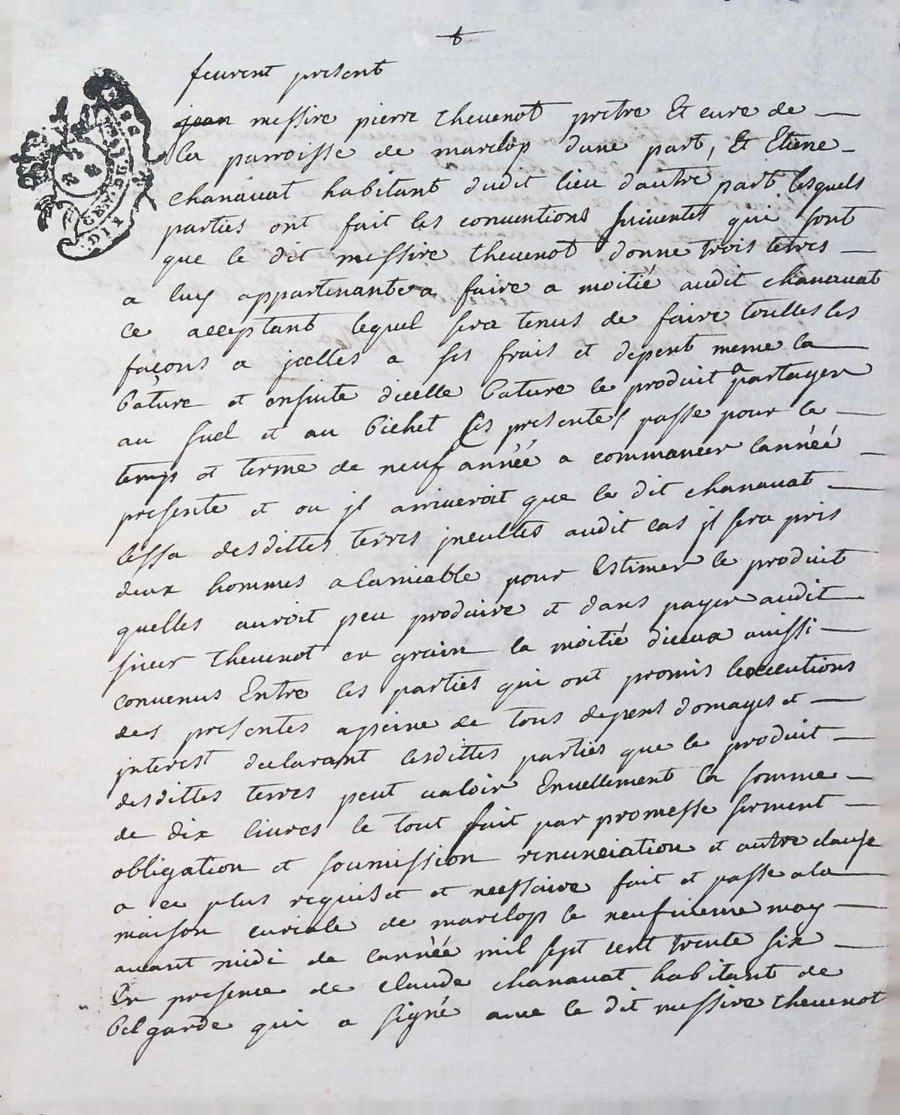 feurent present
messire pierre thevenot prètre Et cure de
la parroisse de marclop dune part, Et Etiene
chanavat habitant dudit lieu dautre part lesquels
parties ont fait les conventions suiventes qui sont
que le dit messire thevenot donne trois terres
a luy appartenante a faire a moitié audit chanavat
ce acceptant lequel sera tenus de faire touttes les
façons a jcelles a ses frais et depent meme la
bature et ensuite dicelle bature le produit a partager
au suel et au bichet les presentes passe pour le
temps et terme de neuf année a commancer lannéé
presente et ou jl arriveroit que le dit chanavat
lessa desdittes terres jncultes audit cas jl sera pris
deux hommes alamiable pour Estimer le produit
quelles auroit peu produire et dans payer audit
sieur thevenot en grain la moitié diceux aussi
convenus Entre les parties qui ont promis lexecutions
des presentes apeine de tous depens domages et
jnterest declarant lesdittes parties que le produit
desdittes terres peut valoir Enuellement la somme
de dix livres le tout fait par promesse serment
obligation et soumission renunciation et autre clause
a ce plus requis et et nessaire fait et passe a la
maison curiale de marclop le neufvieme may
avant midi de lannéé mil sept cent trente six
En presence de claude chanavat habitant de
belgarde qui a signé avec le dit messire thevenot
GEN. DE LION